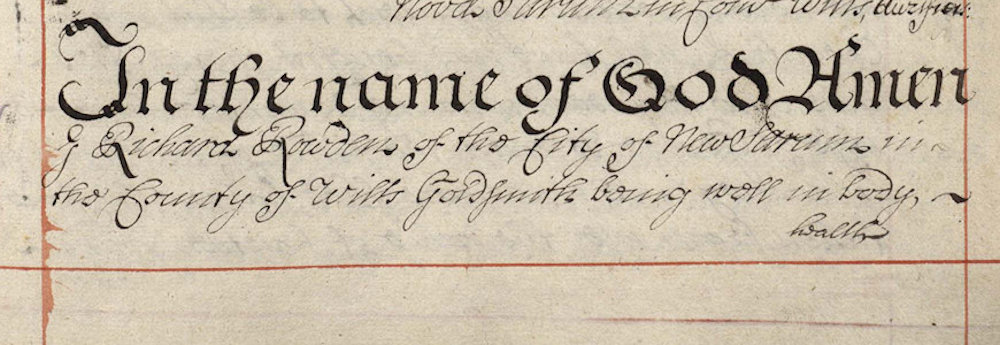 Nova Sarum in Com Wilts, Aurifici:
In the name of God Amen
I Richard Rowden of the City of New Sarum in
the County of Wilts Goldsmith being well in body,
health